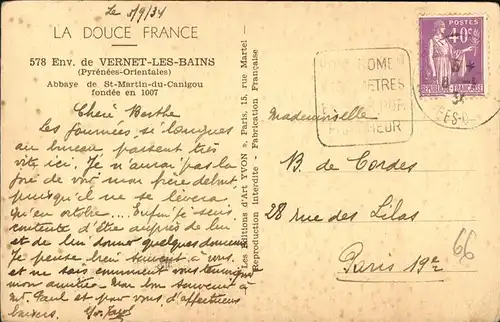 Le 5/9/34
LA DOUCE FRANCE
578 Env. de VERNET-LES-BAINS
(Pyrénées-Orientales)
Abbaye de St-Martin-du-Canigou
fondée en 1007
Chère Berthe
Les journées si longues
au bureau passent très
vite ici. Je n'aurai pas la
joie de voir mon frère debout
puisqu'il ne se lèvera
qu'en octobre.... Enfin je suis
contente d'être auprès de lui
et de lui donner quelques douceurs
Je pense bien souvent à vous
et ne sais comment vous témoigner
mon amitié. Mon bon souvenir à
Mr. Paul et pour vous d'affectueux
baisers.
Les Editions d'Art YVON », Paris, 15, rue Martel
Reproduction Interdite - Fabrication Française
POSTES
40c
REPUBLIQUE FRANÇAISE
Mademoiselle
B. de Cordes
28 rue des Lilas
Paris 19e
66